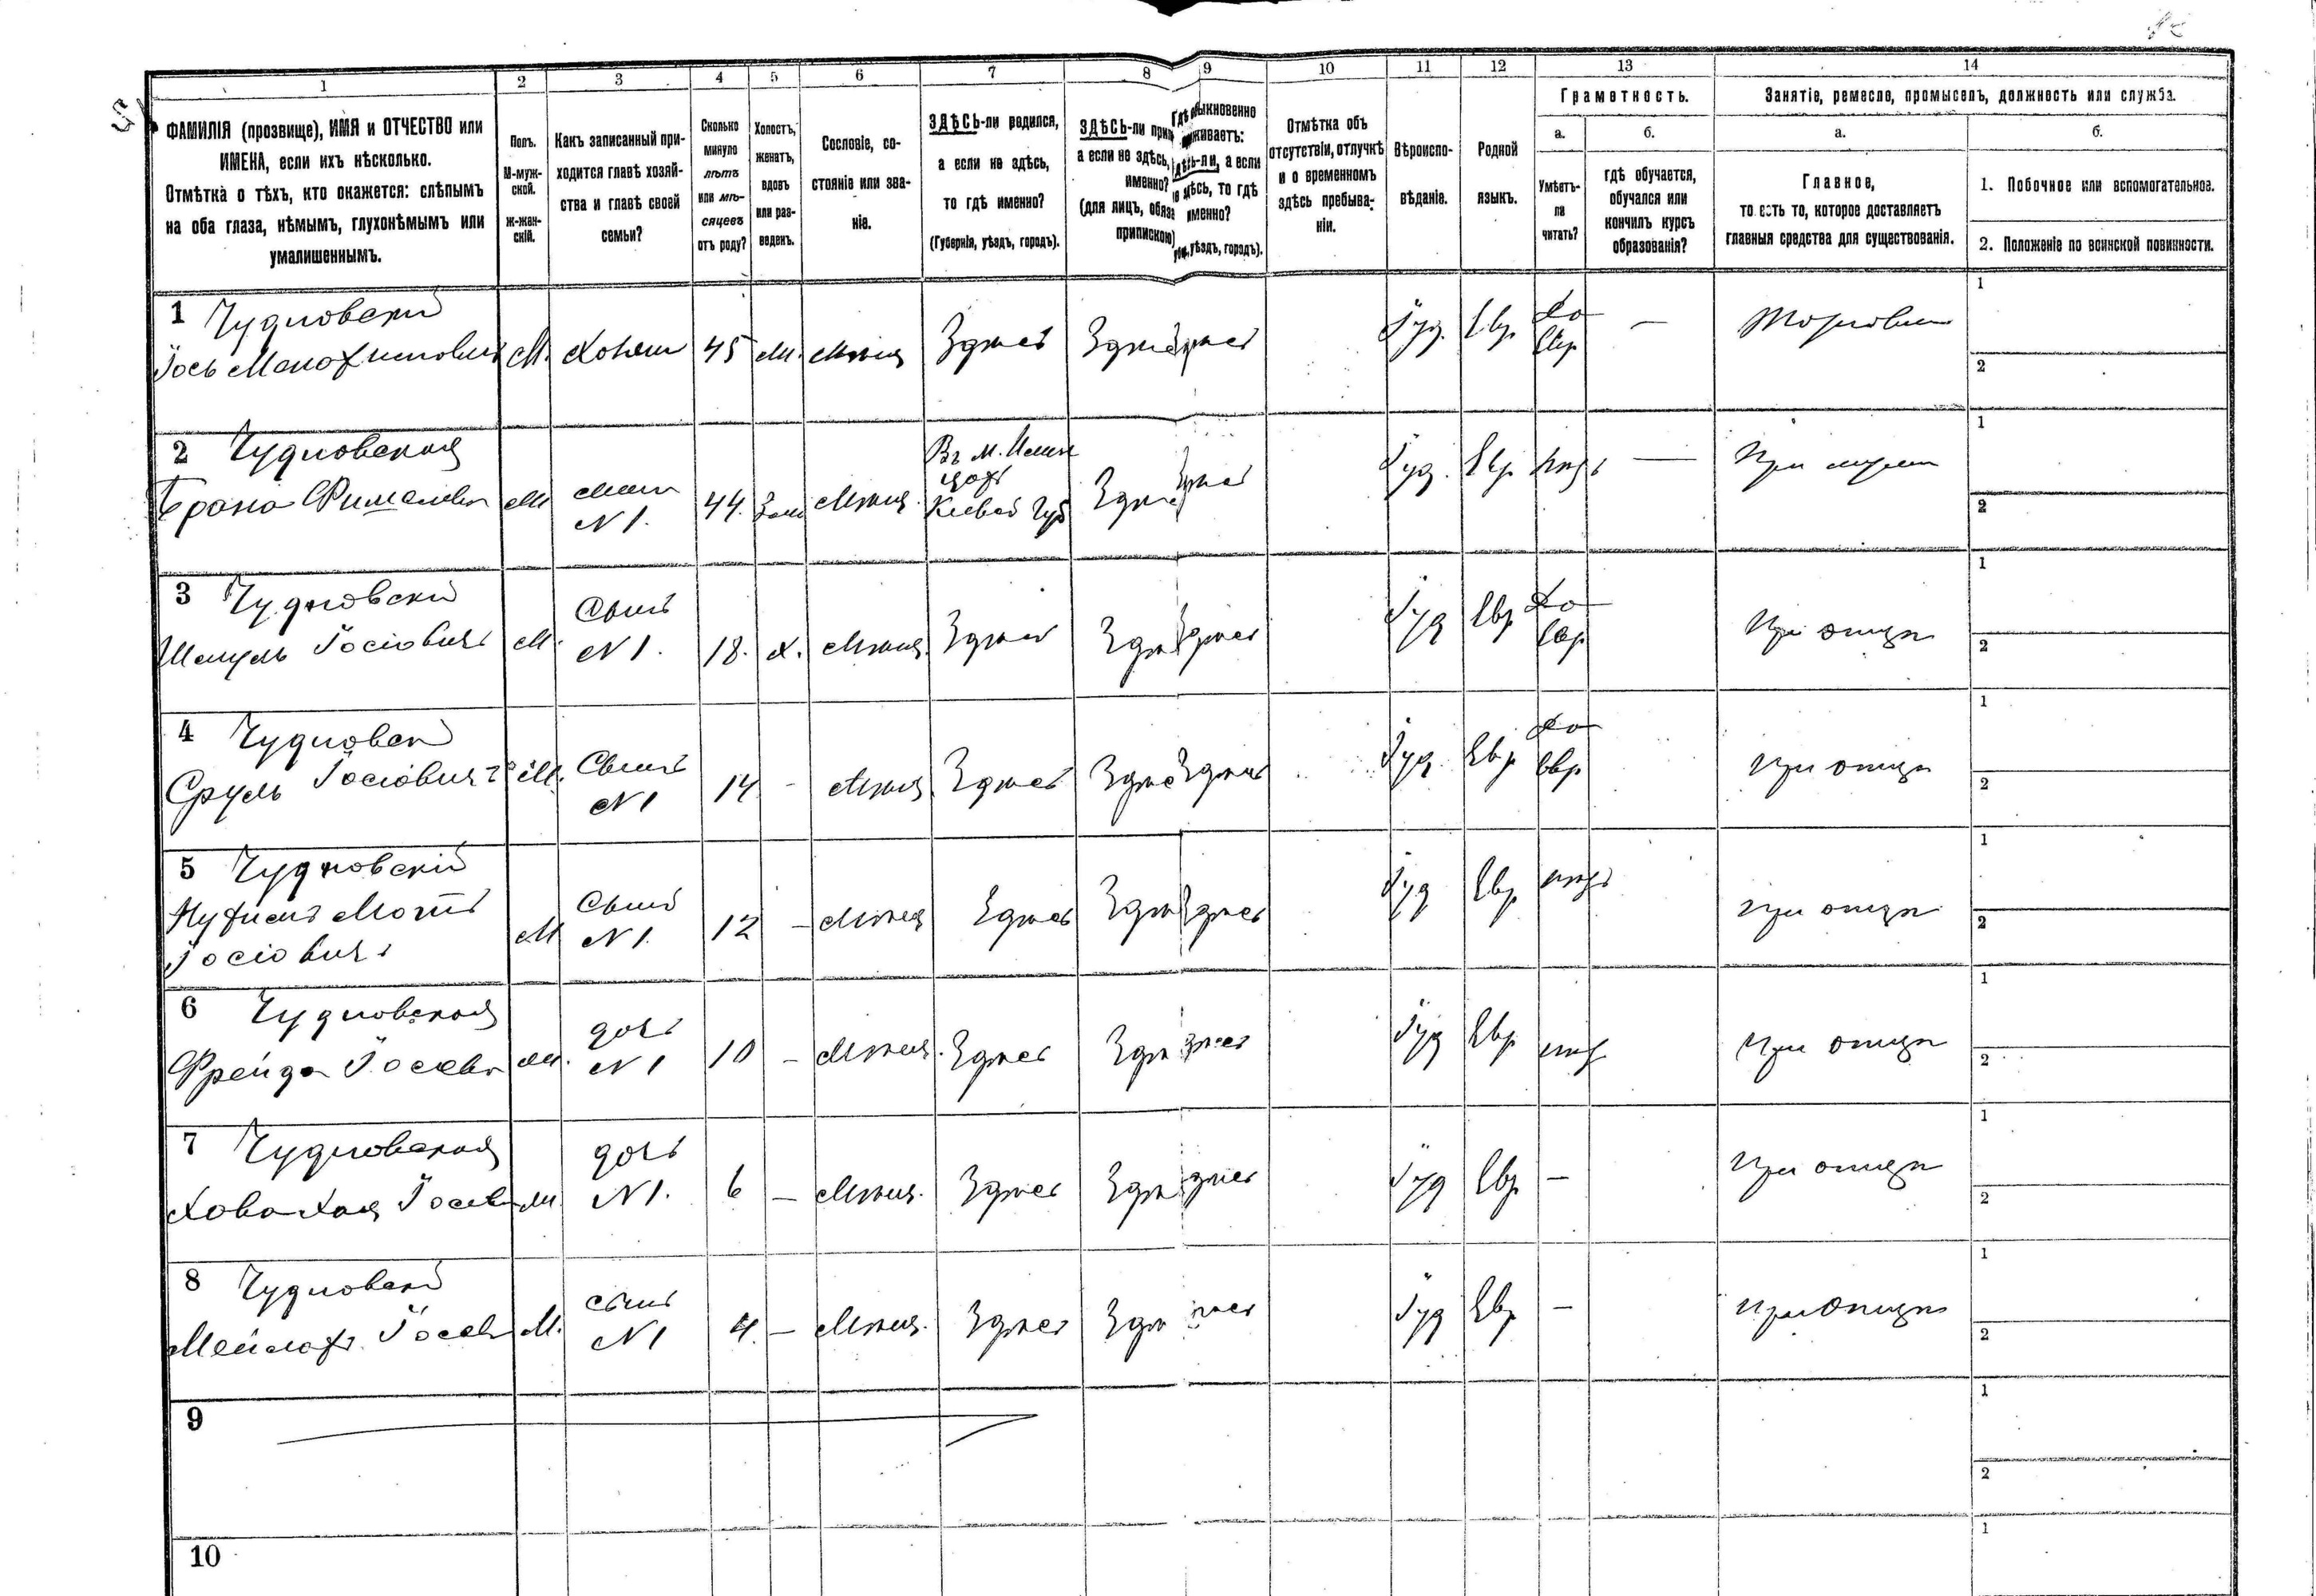 1 2 3 4 5 6 7 8 9 10 11 12 13 14
ФАМИЛІЯ (прозвище), ИМЯ и ОТЧЕСТВО или
ИМЕНА, если ихъ нѣсколько.
Отмѣтка о тѣхъ, кто окажется: слѣпымъ
на оба глаза, нѣмымъ, глухонѣмымъ или
умалишеннымъ.
Полъ.
М-муж-
ской.
Ж-жен-
скій.
Какъ записанный при-
ходится главѣ хозяй-
ства и главѣ своей
семьи?
Сколько
минуло
лѣтъ
или мѣ-
сяцевъ
отъ роду?
Холостъ,
женатъ,
вдовъ
или раз-
веденъ.
Сословіе, со-
стояніе или зва-
ніе.
ЗДѢСЬ-ли родился,
а если не здѣсь,
то гдѣ именно?
(Губернія, уѣздъ, городъ).
ЗДѢСЬ-ли прип
а если не здѣсь,
именно?
(для лицъ, обяза
припискою)
Гдѣ быкновенно
живаетъ:
дѣсь-ли, а если
дѣсь, то гдѣ
именно?
уѣздъ, городъ).
Отмѣтка объ
отсутствіи, отлучкѣ
и о временномъ
здѣсь пребыва-
ніи.
Вѣроиспо-
вѣданіе.
Родной
языкъ.
Грамотность.
а.
Умѣетъ-
ли
читать?
б.
гдѣ обучается,
обучался или
кончилъ курсъ
образованія?
Занятіе, ремесло, промыселъ, должность или служба.
а.
Главное,
то есть то, которое доставляетъ
главныя средства для существованія.
б.
1. Побочное или вспомогательное.
2. Положеніе по воинской повинности.
1 Чудновскій
Іось М. Хозяин 45 Мѣщ Здѣсь Здѣсь Здѣсь Іуд. Евр. Евр — Торговец
1
2
2 Чудновская
N 1. 44. Мѣщ. Въ м.
Кіевской Губ Здѣсь Здѣсь Іуд. Евр —
1
2
3 Чудновскій
Шмуль Іосіовичъ М. Сынъ
N 1. 18. Х. Мѣщ. Здѣсь Здѣ Здѣсь Іуд Евр Евр При отцѣ
1
2
4 Чудновскій
Сруль Іосіовичъ М. Сынъ
N 1 14 - Мѣщ. Здѣсь Здѣс Здѣсь Іуд. Евр Евр При отцѣ
1
2
5 Чудновскій
Іосіовичъ М Сынъ
N 1. 12 - Мѣщ Здѣсь Здѣ Здѣсь Іуд Евр При отцѣ
1
2
6 Чудновская
Фрейда дочь
N 1 10 - Мѣщ. Здѣсь Здѣ Іуд Евр При отцѣ
1
2
7 Чудновская
Хова Хая дочь
N 1. 6 — Мѣщ. Здѣсь Здѣ Іуд Евр — При отцѣ
1
2
8 Чудновскій
Мейлахъ М. сынъ
N 1 4. — Мѣщ. Здѣсь Здѣ Іуд Евр — При Отцѣ
1
2
9
1
2
10
1